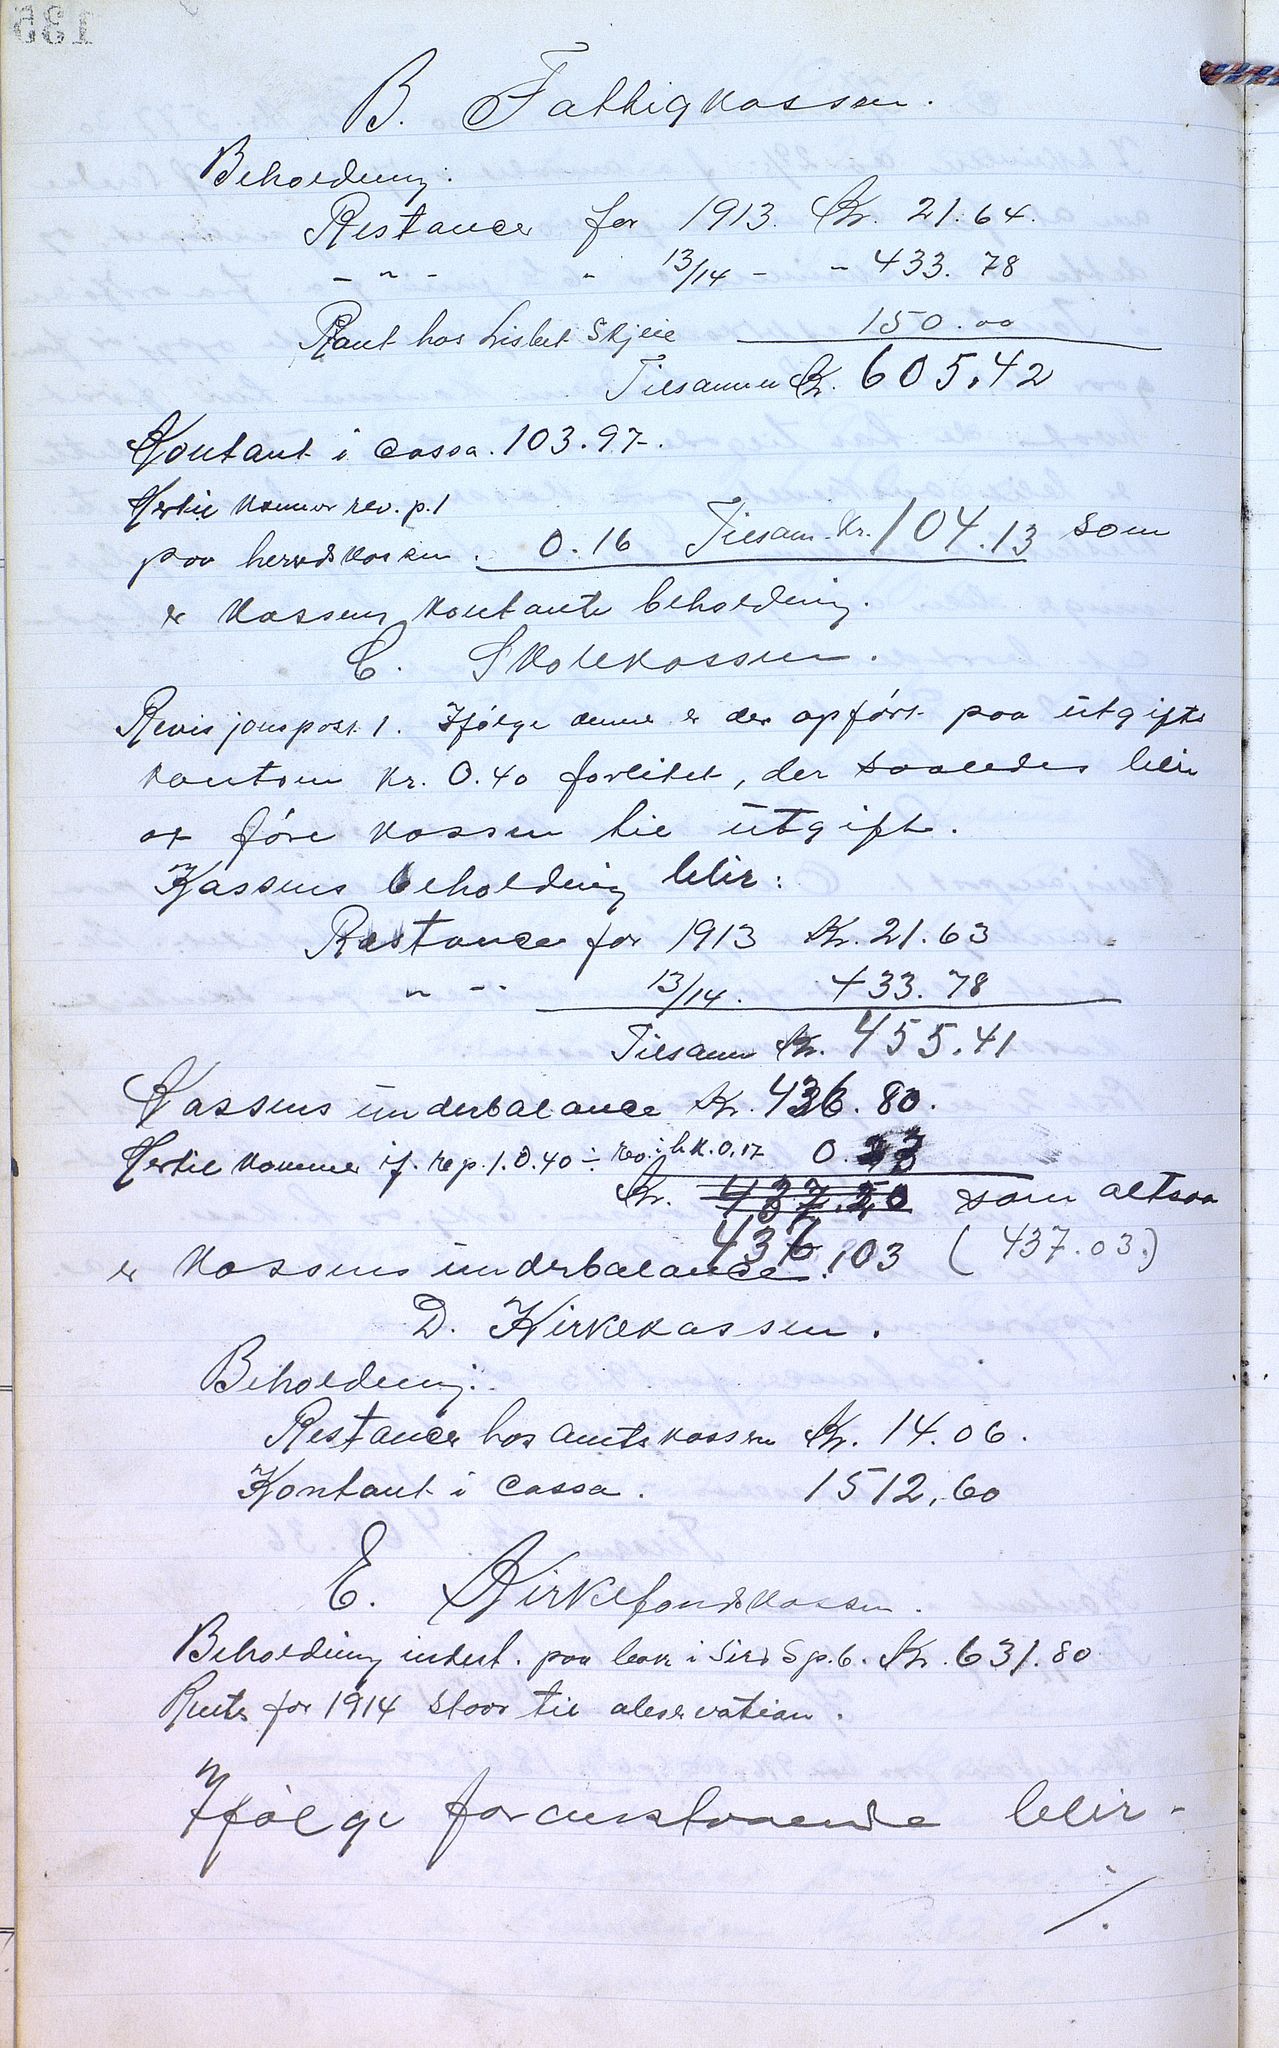 B. Fattigkassen.
Beholdning:
Restancer for 1913. Kr. 21.64.
- " - " 13/14 - - 433.78
Pant hos Lisbet Skjeie 150.00
Tilsammen Kr. 605.42
Kontant i cassa. 103.97.
Hertil kommer rev. p. 1
paa herredskassen. 0.16 Tilsam. Kr. 104.13 som
er kassens kontante beholdning.
C. Skolekassen.
Revisjonspost 1. Ifølge denne er der opført paa utgifts
kontoen kr. 0.40 forlitet, der saaledes blir
at føre kassen til utgift.
Kassens beholdning blir:
Restancer for 1913 Kr. 21.63
" - " 13/14. 433.78
Tilsamm Kr. 455.41
Kassens underbalance Kr. 436.80.
Hertil kommer if. rep. 1. 0.40 ÷ rev. i h.k. 0.17 0.23
Kr. 437.20 som altsaa
436.03 (437.03.)
er kassens underbalance.
D. Kirkekassen.
Beholdning:
Restancer hos amtskassen Kr. 14.06.
Kontant i cassa. 1512,60
E. Kirkefondskassen.
Beholdning indest. paa bok i Sird Sp.b. Kr. 631.80
Rente for 1914 staar til observation.
Ifølge foranstaaende blir-
/.